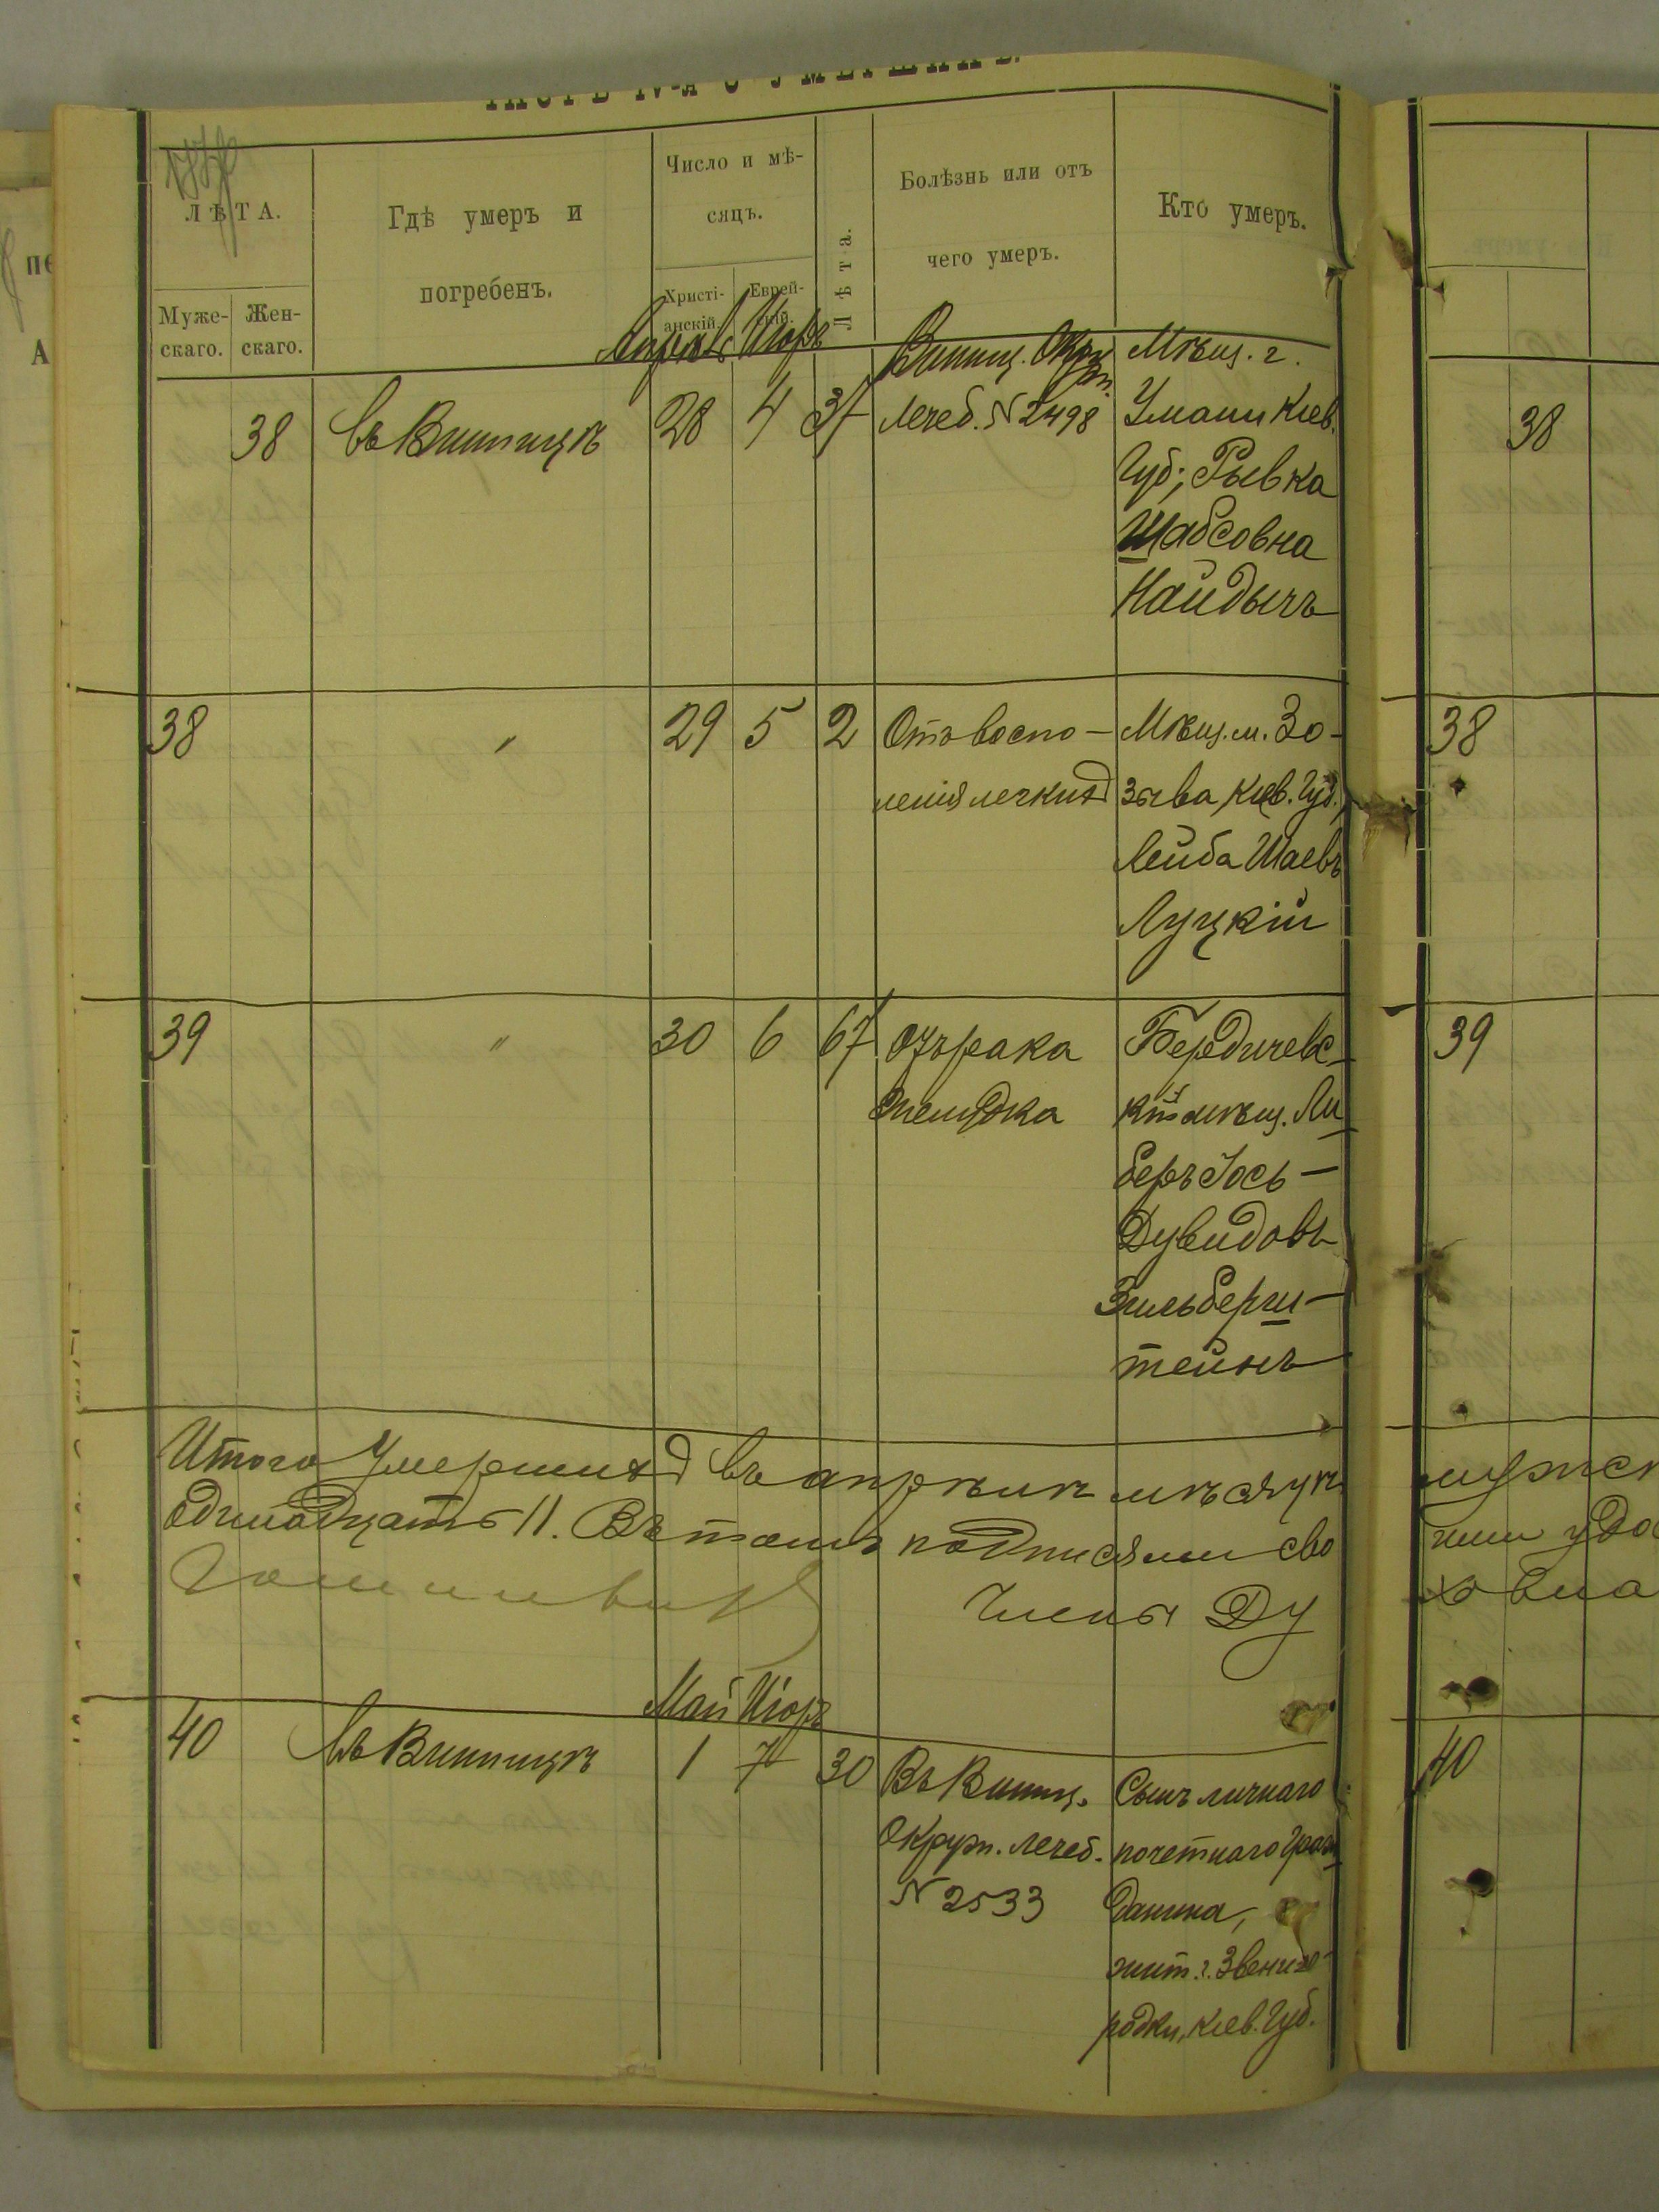 ЧАСТЬ IV-Я О УМЕРШИХЪ.
ЛѢТА.
Муже-
скаго.
Жен-
скаго.
Гдѣ умеръ и
погребенъ.
Число и мѣ-
сяцъ.
Христі-
анскій.
Еврей-
скій.
Лѣта.
Болѣзнь или отъ
чего умеръ.
Кто умеръ.
Апрѣль Иіоръ
38 въ Винницѣ 28 4 37
Винниц. Окруж.
Лечеб. N 2498
Мѣщ. г.
Умани Кіев.
Губ; Рывка
Шабсовна
Найдычъ
38 " 29 5 2
Отъ воспо-
ленія легкихъ
Мѣщ. м. Зо-
зыва, Кіев. Губ.,
Лейба Шаевъ
Луцкій
39 " 30 6 67
Отъ рака
желудка
Бердичевс-
кій мѣщ. Ли
беръ Іось-
Дувидовъ
Зильберш-
тейнъ
Итого Умершихъ въ апрѣлѣ мѣсяцѣ
одинадцать 11. Въ томъ подписями сво
Члены Ду
Май Иіоръ
40 въ Винницѣ 1 7 30
Въ Винниц.
Окруж. лечеб.
N 2533
Сынъ личнаго
почетнаго Граж
данина,
жит. г. Звениго-
родки, Кіев. Губ.
38
38
39
мужск
ими удо
40